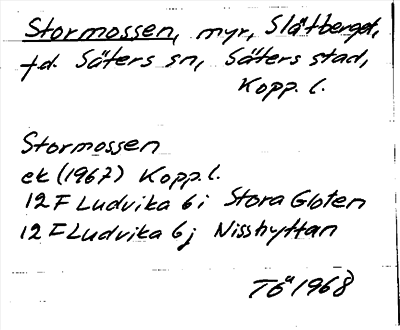 Stormossen, myr, Slätberget,
f.d. Säters sn, Säters stad,
Kopp. l.
Stormossen
ek (1967) Kopp. l.
12F Ludvika 6i Stora Gloten
12F Ludvika 6j Nisshyttan
Tö 1968